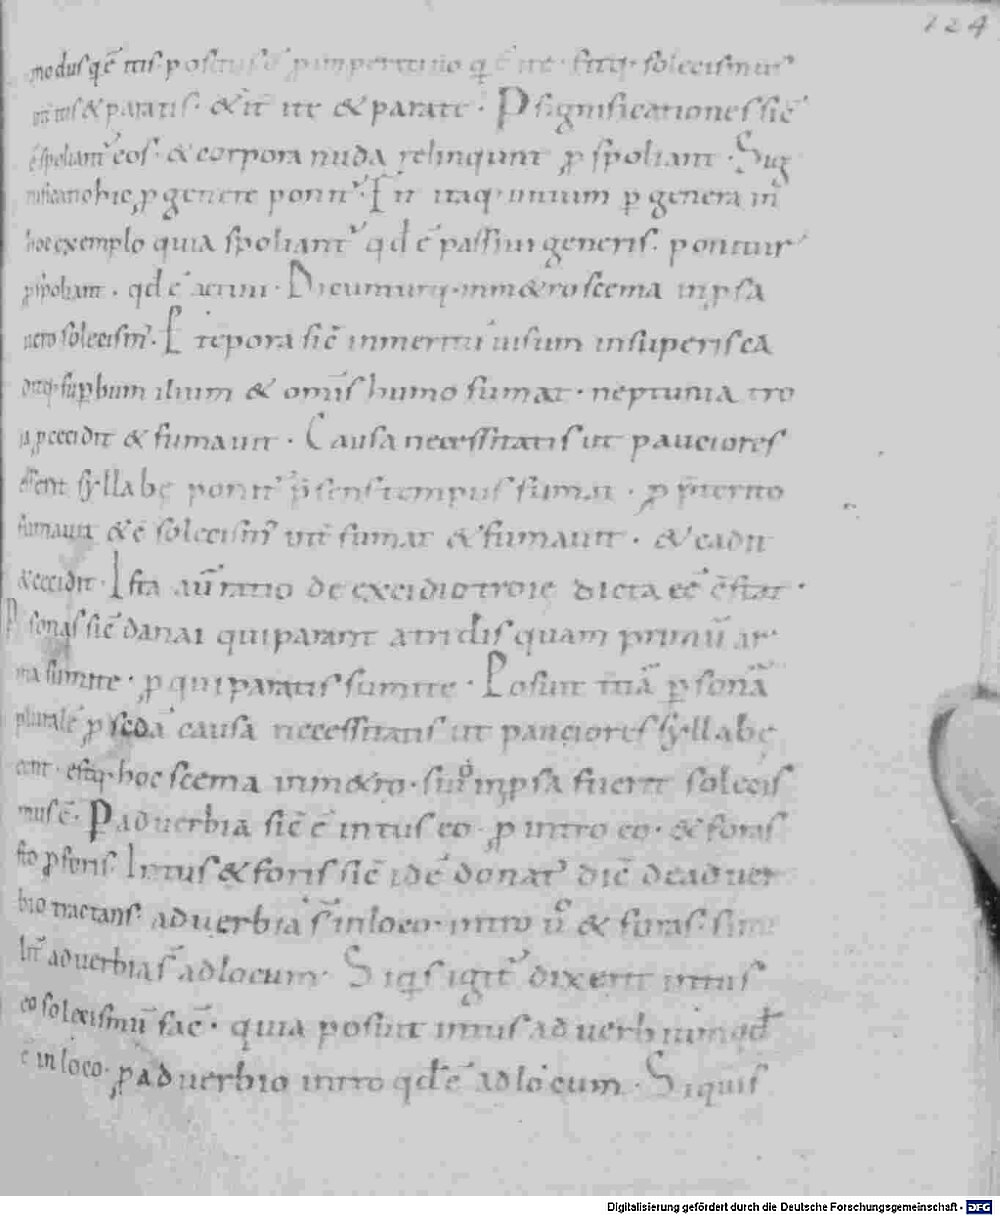 124
modusq; ē itis positus ē p imperativo q ē ite. fitq; solecismus
int itis & paratis. & int ite & parate. P significationes sic
ē spoliantur eos. & corpora nuda relinqunt p spoliant. Sig
nificatio hic, p genere ponit. Fit itaq; vitium p genera in
hoc exemplo quia spoliantur qd ē passivi generis. ponitur
p spoliant. qd ē activi. Dicunturq; in metro scema in psa
vero solecism. P tēpora sic inmeritā visum superis ce
ditq; supbum ilium & omīs humo fumat. neptunia tro
ia, p cecidit & fumavit. Causa necessitatis ut pauciores
essent syllabę ponit p̄sens tempus fumat. p p̄terito
fumavit & ē solecism int fumat & fumavit. & cadit
& cecidit. Ista aū ratio de excidio troie dicta eē cēstat.
P sonas sic danai qui parent atridis quam primū ar
ma sumite. p qui paratis sumite. Posuit tītiā psonā
pluralē p secdā causa necessitatis ut pauciores syllabę
eent. estq; hoc scema in metro. si vo in psa fuerit solecis
mus ē. P adverbia sic ē intus eo. p intro eo. & foras
sto p foris. Intus & foris sic idē donat dic de adver
bio tractans. adverbia st in loco. intro vo & foras. sim
lit adverbia st ad locum. Si qs igit dixerit intus
eo solecismū fac. quia posuit intus adverbium qd
ē in loco. p adverbio intro qd ē ad locum. Si quis
Digitalisierung gefördert durch die Deutsche Forschungsgemeinschaft - DFG